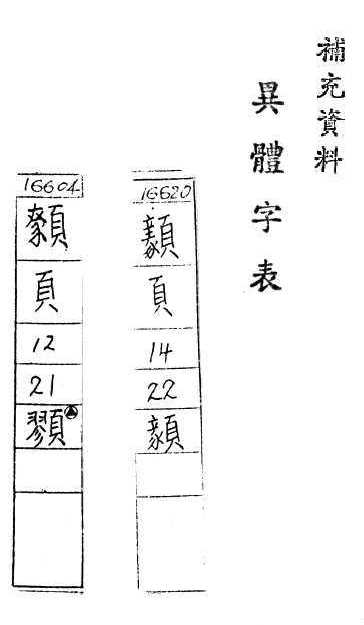 補充資料
異體字表
16620
頁
14
22
16604
頁
12
21